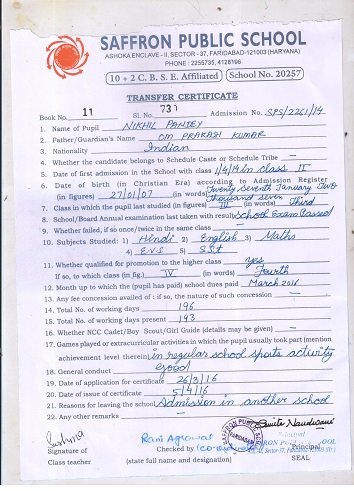 SAFFRON PUBLIC SCHOOL
ASHOKA ENCLAVE - II, SECTOR - 37, FARIDABAD-121003 (HARYANA)
PHONE : 2255735, 4128196
10 + 2 C. B. S. E. Affiliated School No. 20257
TRANSFER CERTIFICATE
Book No. 11 Sl. No. 731 Admission No. SPS/2261/14
1. Name of Pupil NIKHIL PANDEY
2. Father/Guardian's Name OM PRAKASH KUMAR
3. Nationality Indian
4. Whether the candidate belongs to Schedule Caste or Schedule Tribe —
5. Date of first admission in the School with class 1/4/14 in class II
6. Date of birth (in Christian Era) according to Admission Register
(in figures) 27/01/07 (in words) Twenty Seventh January Two Thousand Seven
7. Class in which the pupil last studied (in figures) III (in words) Third
8. School/Board Annual examination last taken with result School Exam Passed
9. Whether failed, if so once/twice in the same class —
10. Subjects Studied: 1) Hindi 2) English 3) Maths
4) E.V.S 5) S.St
11. Whether qualified for promotion to the higher class yes
If so, to which class (in fig.) IV (in words) Fourth
12. Month up to which the (pupil has paid) school dues paid March 2016
13. Any fee concession availed : if so, the nature of such concession —
14. Total No. of working days 196
15. Total No. of working days present 193
16. Whether NCC Cadet/Boy Scout/Girl Guide (details may be given) —
17. Games played or extracurricular activities in which the pupil usually took part (mention
achievement level therein) in regular school sports activity
18. General conduct Good
19. Date of application of certificate 26/3/16
20. Date of issue of certificate 5/4/16
21. Reasons for leaving the school Admission in another school
22. Any other remarks
SAFFRON PUBLIC
FARIDABAD
Principal
Signature of Checked by
Class teacher (state full name and designation) SEAL